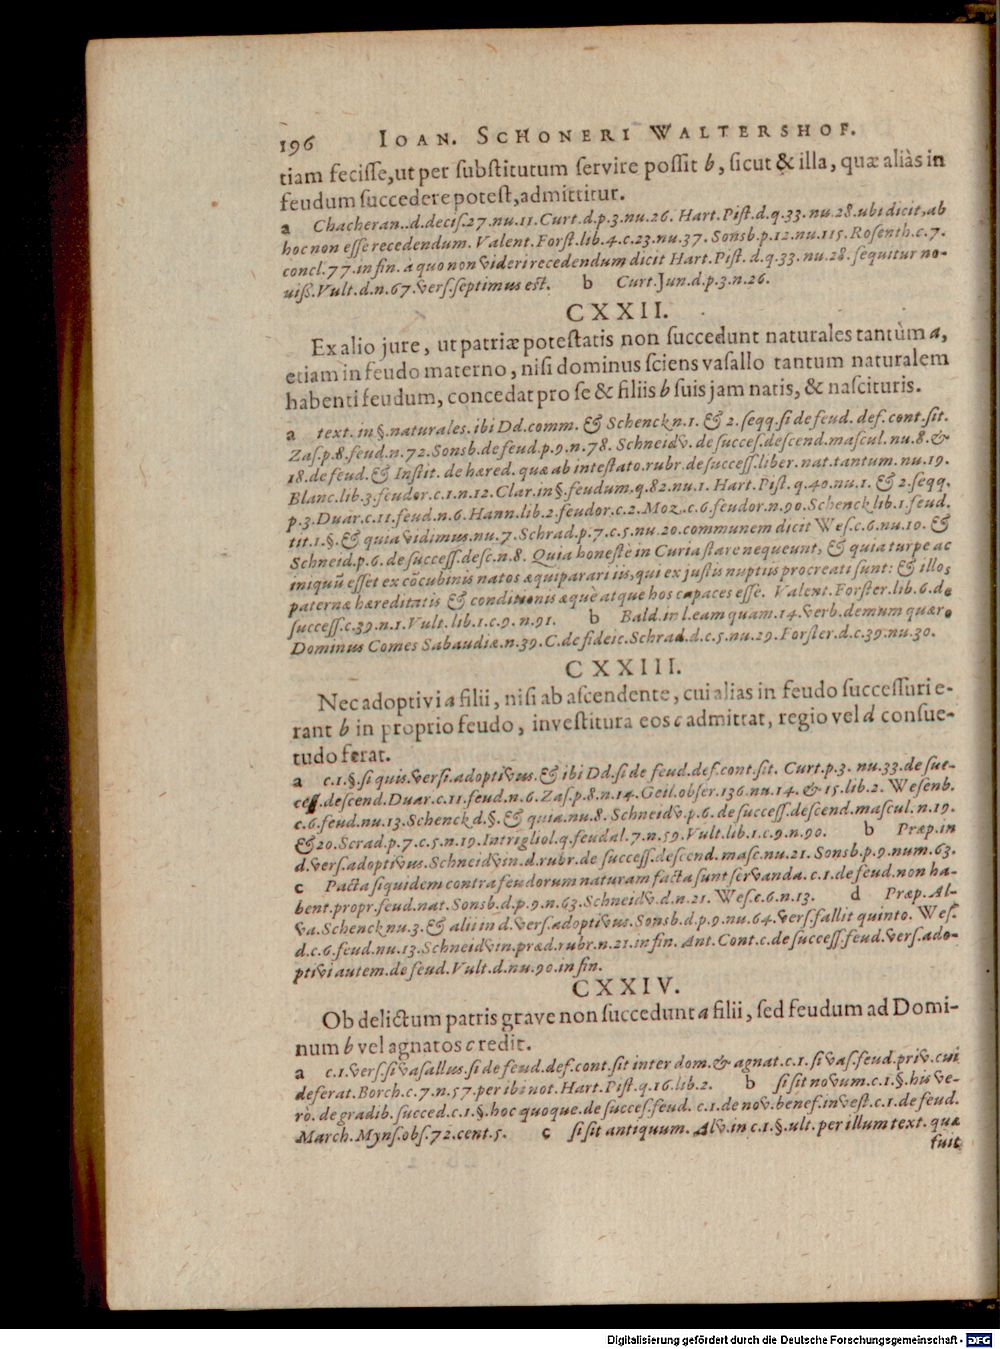 196 IOAN. SCHONERI WALTERSHOF.
tiam fecisse, ut per substitutum servire possit b, sicut & illa, quæ aliàs in
feudum succedere potest, admittitur.
a Chacheran..d.decis.27.nu.11.Curt.d.p.3.nu.26. Hart. Pist.d.q.33.nu.28.ubi dicit, ab
hoc non esse recedendum. Valent. Forst.lib.4.c.23.nu.37. Sonsb.p.12.nu.115. Rosenth.c.7.
concl.77.in fin. a quo non videri recedendum dicit Hart. Pist. d.q.33.nu.28. sequitur no-
uiß.Vult.d.n.67.vers.septimus est. b Curt.Jun.d.p.3.n.26.
CXXII.
Ex alio jure, ut patriæ potestatis non succedunt naturales tantùm a,
etiam in feudo materno, nisi dominus sciens vasallo tantum naturalem
habenti feudum, concedat pro se & filiis b suis jam natis, & nascituris.
a text. in §. naturales. ibi Dd.comm. & Schenck n.1. & 2. seqq. si de feud. def. cont. sit.
Zas.p.8.feud.n.72.Sonsb.de feud.p.9.n.78. Schneidv. de succes.descend.mascul. nu.8.&
18.de feud. & Instit. de hæred. quæ ab intestato.rubr.de success.liber. nat.tantum. nu.19.
Blanc.lib.3.feudor.c.1.n.12. Clar.in §.feudum.q.82.nu.1. Hart. Pist. q.40.nu.1. & 2.seqq.
p.3.Duar.c.11.feud.n.6. Hann.lib.2.feudor.c.2. Moz.c.6.feudor.n.90.Schenck lib.1.feud.
tit.1.§.& quia vidimus.nu.7. Schrad.p.7.c.5.nu.20.communem dicit Wes.c.6.nu.10. &
Schneid.p.6.de success.desc.n.8. Quia honestè in Curia stare nequeunt, & quia turpe ac
iniquũ esset ex cõcubinis natos æquiparari iis, qui ex justis nuptiis procreati sunt: & illos
paternæ hæreditatis & conditionis æque atque hos capaces esse. Valent. Forster.lib.6.de
success.c.39.n.1.Vult.lib.1.c.9.n.91. b Bald.in l.eam quam.14.verb.demum quæro
Dominus Comes Sabaudiæ.n.39.C.de fideic.Schrad.d.c.5.nu.29.Forster.d.c.39.nu.30.
CXXIII.
Nec adoptivi a filii, nisi ab ascendente, cui alias in feudo successuri e-
rant b in proprio feudo, investitura eos c admittat, regio vel d consue-
tudo ferat.
a c.1.§.si quis.versi.adoptivus.& ibi Dd.si de feud.def.cont.sit. Curt.p.3. nu.33.de suc-
cess.descend.Duar.c.11.feud.n.6.Zas.p.8.n.14.Geil.obser.136.nu.14.& 15.lib.2. Wesenb.
c.6.feud.nu.13.Schenck d.§. & quia.nu.8. Schneidv.p.6.de success.descend.mascul.n.19.
& 20.Scrad.p.7.c.5.n.19.Intrigliol.q.feudal.7.n.59.Vult.lib.1.c.9.n.90. b Præp.in
d.vers.adoptivus.Schneidvin.d.rubr.de success.descend. masc.nu.21. Sonsb.p.9.num.63.
c Pacta siquidem contra feudorum naturam facta sunt servanda. c.1.de feud.non ha-
bent.propr.feud.nat.Sonsb.d.p.9.n.63.Schneidv.d.n.21. Wes.c.6.n.13. d Præp. Al-
va.Schenck nu.3.& alii in d.vers.adoptivus.Sonsb.d.p.9.nu.64.vers.fallit quinto. Wes.
d.c.6.feud.nu.13.Schneidvin.præd.rubr.n.21.in fin. Ant. Cont.c.de success.feud.vers.ado-
ptivi autem.de feud.Vult.d.nu.90.in fin.
CXXIV.
Ob delictum patris grave non succedunt a filii, sed feudum ad Domi-
num b vel agnatos c redit.
a c.1.vers.si vasallus.si de feud.def.cont.sit inter dom.& agnat.c.1.si vas.feud.priv.cui
deferat.Borch.c.7.n.57.per ibi not.Hart.Pist.q.16.lib.2. b si sit novum.c.1.§.his ve-
rò. de gradib. succed.c.1.§.hoc quoque.de succes.feud. c.1.de nov.benef.invest.c.1.de feud.
March.Myns.obs.72.cent.5. c si sit antiquum. Alv.in c.1.§.ult.per illum text. quæ
fuit
Digitalisierung gefördert durch die Deutsche Forschungsgemeinschaft - DFG